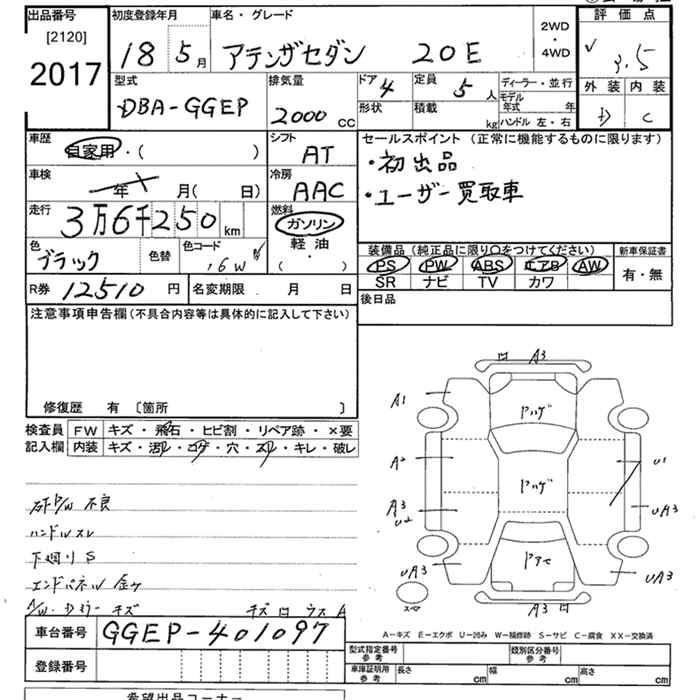 出品番号 初度登録年月 車名・グレード 2WD・4WD 評価点
[2120]
2017 18 5月 アテンザセダン 20E 3.5
型式 排気量 ドア 4 定員 5人 ディーラー・並行 外装 内装
DBA-GGEP 2000cc 形状 積載 kg モデル年式 年 D C
ハンドル 左・右
車歴 シフト セールスポイント (正常に機能するものに限ります)
自家用・( ) AT ・初出品
車検 年 月( 日) 冷房 AAC ・ユーザー買取車
走行 3万6千250km 燃料 ガソリン
軽油
( ・ )
色 ブラック 色替 色コード 16W 装備品 (純正品に限り○をつけてください) 新車保証書
PS PW ABS エアB AW 有・無
SR ナビ TV カワ
R券 12510円 名変期限 月 日 後日品
注意事項申告欄 (不具合内容等は具体的に記入して下さい)
修復歴 有 〔箇所 〕
検査員 FW キズ・飛石・ヒビ割・リペア跡・×要
記入欄 内装 キズ・汚レ・コゲ・穴・スレ・キレ・破レ
不良
ハンドルスレ
下廻りS
エンドパネル
キズ ウスA
A3
A1 ハゲ
A2 ハゲ U1
A3 U2 UA3
UA3 UA3
A3
A-キズ E-エクボ U-凹み W-補修跡 S-サビ C-腐食 XX-交換済
車台番号 GGEP-401097
登録番号
型式指定番号 参考 類別区分番号 参考
車庫証明用 参考 長さ cm 幅 cm 高さ cm
希望出品コーナー